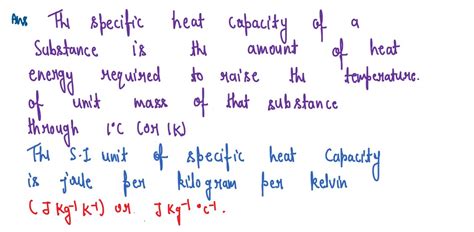 Ans The specific heat capacity of a
Substance is the amount of heat
energy required to raise the temperature.
of unit mass of that substance
through 1°C (or 1K)
The S.I unit of specific heat Capacity
is joule per kilogram per kelvin
(J Kg⁻¹ K⁻¹) or J Kg⁻¹ °C⁻¹.